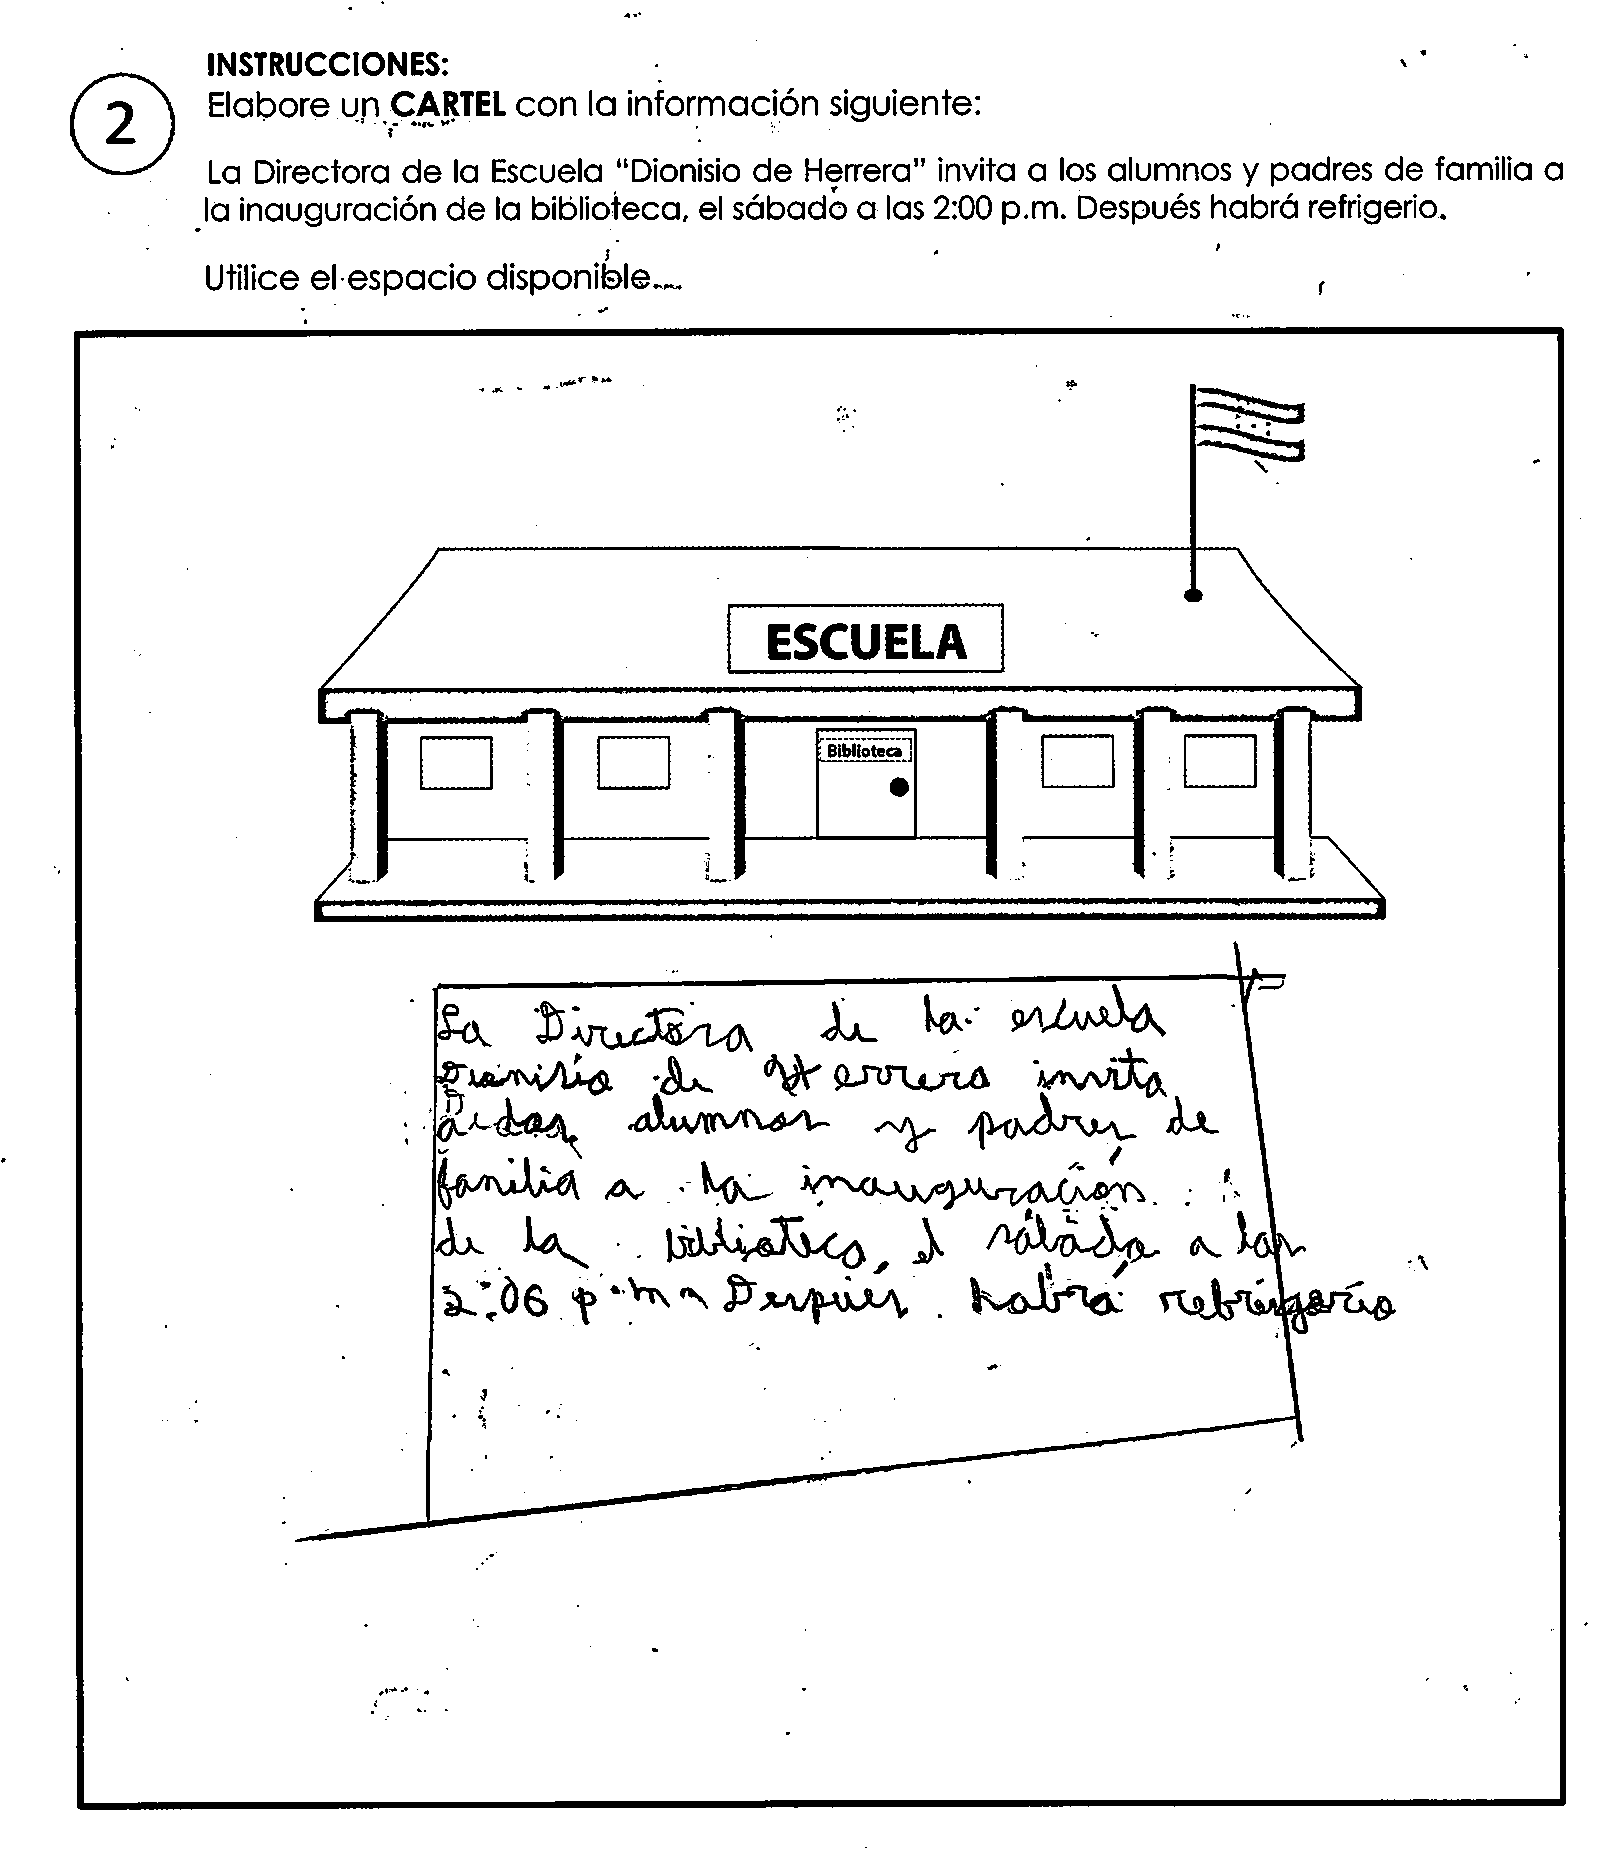 INSTRUCCIONES:
2
Elabore un CARTEL con la información siguiente:
La Directora de la Escuela "Dionisio de Herrera" invita a los alumnos y padres de familia a
la inauguración de la biblioteca, el sábado a las 2:00 p.m. Después habrá refrigerio.
Utilice el espacio disponible.
ESCUELA
Biblioteca
La Directora de la escuela
Dionisio de Herrera invita
a alumnos y padres de
familia a la inauguración
de la biblioteca, el sábado a las
2:06 p.m Después habrá rebrigerio